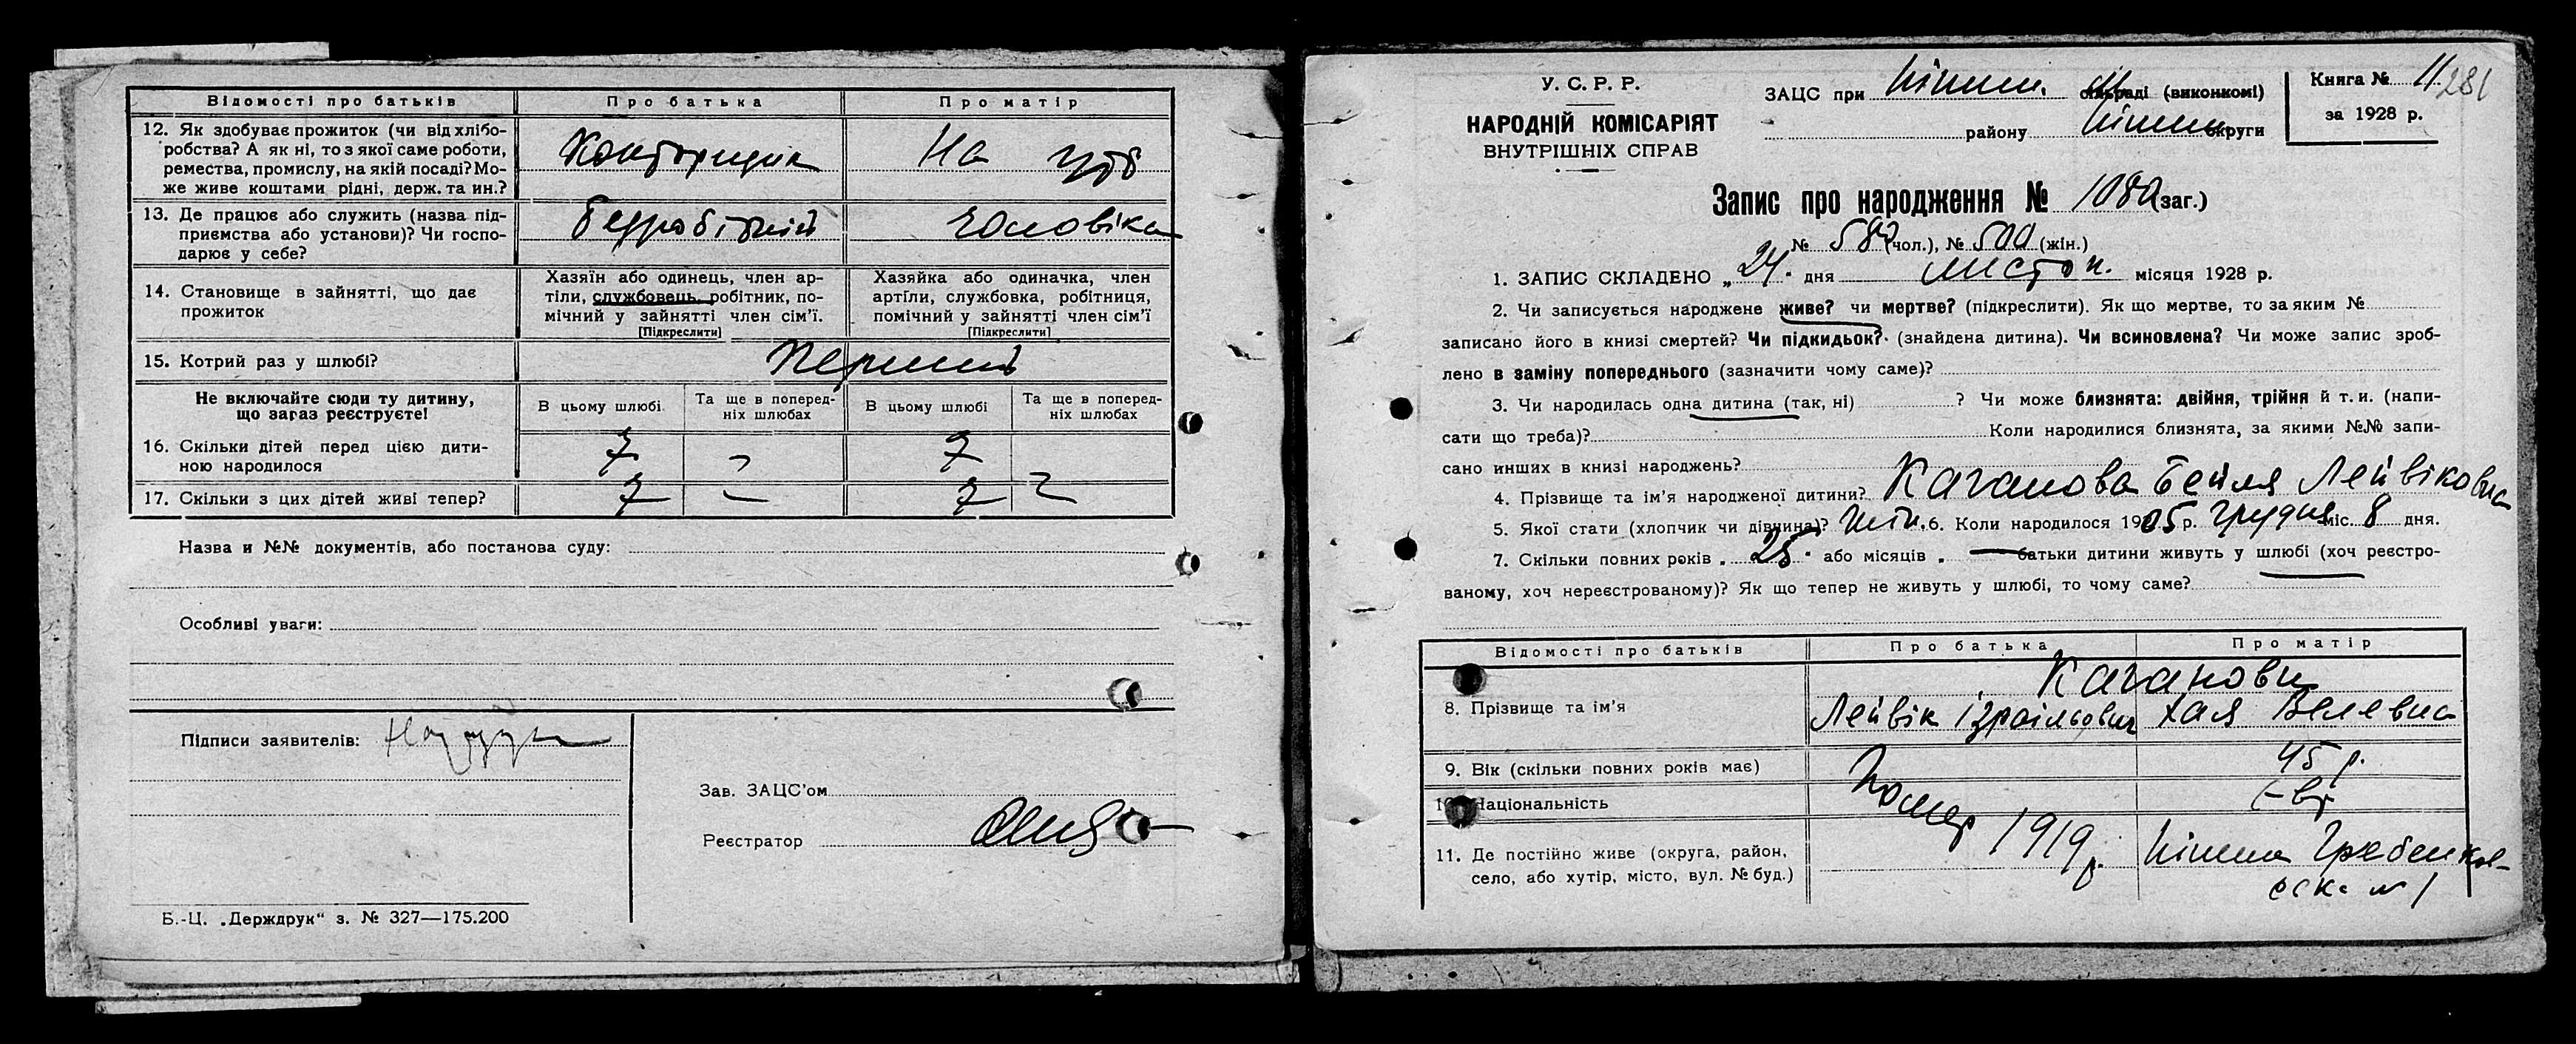 Відомості про батьків
Про батька
Про матір
12. Як здобуває прожиток (чи від хлібо-
робства? А як ні, то з якої саме роботи,
ремества, промислу, на якій посаді? Мо-
же живе коштами рідні, держ. та ин.?
Конторщик
На утр
13. Де працює або служить (назва під-
приємства або установи)? Чи госпо-
дарює у себе?
безробітний
чоловіка
14. Становище в зайнятті, що дає
прожиток
Хазяїн або одинець, член ар-
тіли, службовець, робітник, по-
мічний у зайнятті член сім'ї.
[Підкреслити]
Хазяйка або одиначка, член
артіли, службовка, робітниця,
помічний у зайнятті член сім'ї
[Підкреслити]
15. Котрий раз у шлюбі?
Перший
Не включайте сюди ту дитину,
що зараз реєструєте!
В цьому шлюбі
Та ще в поперед-
ніх шлюбах
В цьому шлюбі
Та ще в поперед-
ніх шлюбах
16. Скільки дітей перед цією дити-
ною народилося
7
7
17. Скільки з цих дітей живі тепер?
7
7
Назва и №№ документів, або постанова суду:
Особливі уваги:
Підписи заявителів:
Зав. ЗАЦС'ом
Реєстратор
Б.-Ц. „Держдрук" з. № 327—175.200
У. С. Р. Р.
НАРОДНІЙ КОМІСАРІЯТ
ВНУТРІШНІХ СПРАВ
ЗАЦС при Ніжин. сільраді (виконкомі)
району Ніжин округи
Книга № 11
281
за 1928 р.
Запис про народження № 1082 (заг.)
№ 582 (чол.), № 500 (жін.)
1. ЗАПИС СКЛАДЕНО „24" дня листоп. місяця 1928 р.
2. Чи записується народжене живе? чи мертве? (підкреслити). Як що мертве, то за яким №
записано його в книзі смертей? Чи підкидьок? (знайдена дитина). Чи всиновлена? Чи може запис зроб-
лено в заміну попереднього (зазначити чому саме)?
3. Чи народилась одна дитина (так, ні) ? Чи може близнята: двійня, трійня й т. и. (напи-
сати що треба)? Коли народилися близнята, за якими №№ запи-
сано инших в книзі народжень?
4. Прізвище та ім'я народженої дитини? Каганова Бейля Лейвіковна
5. Якої стати (хлопчик чи дівчина)? Жін. 6. Коли народилося 1905 р. Грудня міс. 8 дня.
7. Скільки повних років „25" або місяців „ — батьки дитини живуть у шлюбі (хоч реєстро-
ваному, хоч нереєстрованому)? Як що тепер не живуть у шлюбі, то чому саме?
Відомості про батьків
Про батька
Про матір
8. Прізвище та ім'я
Каганови
Лейвік Ізраільович
Хая Велевна
9. Вік (скільки повних років має)
45 р.
10. Національність
Помер 1919 р.
євр
11. Де постійно живе (округа, район,
село, або хутір, місто, вул. № буд.)
Ніжин Гребенков-
ска № 1